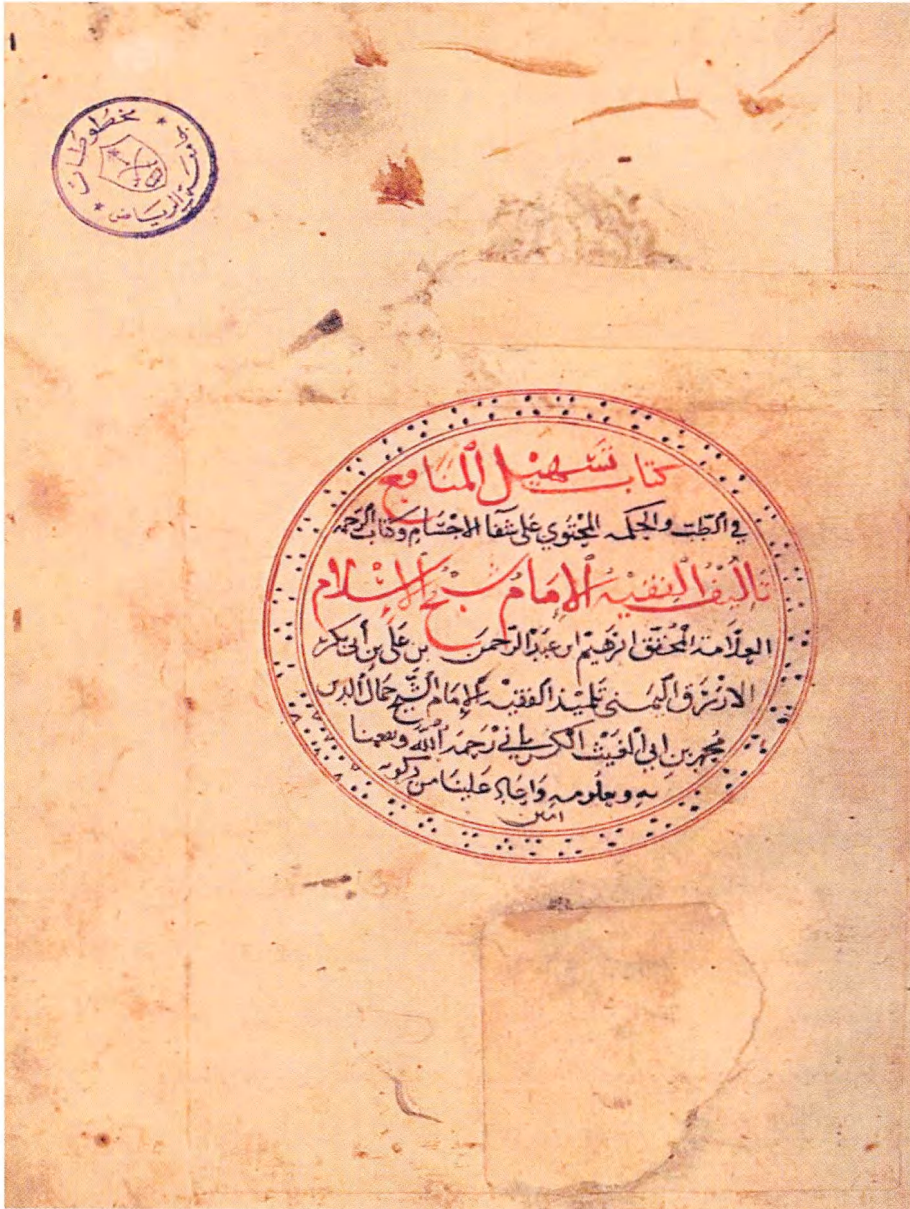 مخطوطات
الرياض
كتاب تسهيل المنافع
في الطب والحكمه المحتوي على شفا الاجسام وكتاب الرحمه
تاليف الفقيه الإمام شيخ الإسلام
العلامة المحقق ابرهيم ابن عبد الرحمن بن علي بن أبي بكر
الازرق اليمني تلميذ الفقيه الإمام الشيخ جمال الدين
محمد بن ابي الغيث الكمراني رحمه الله ونفعنا
به وبعلومه واعاد علينا من بركته
امين